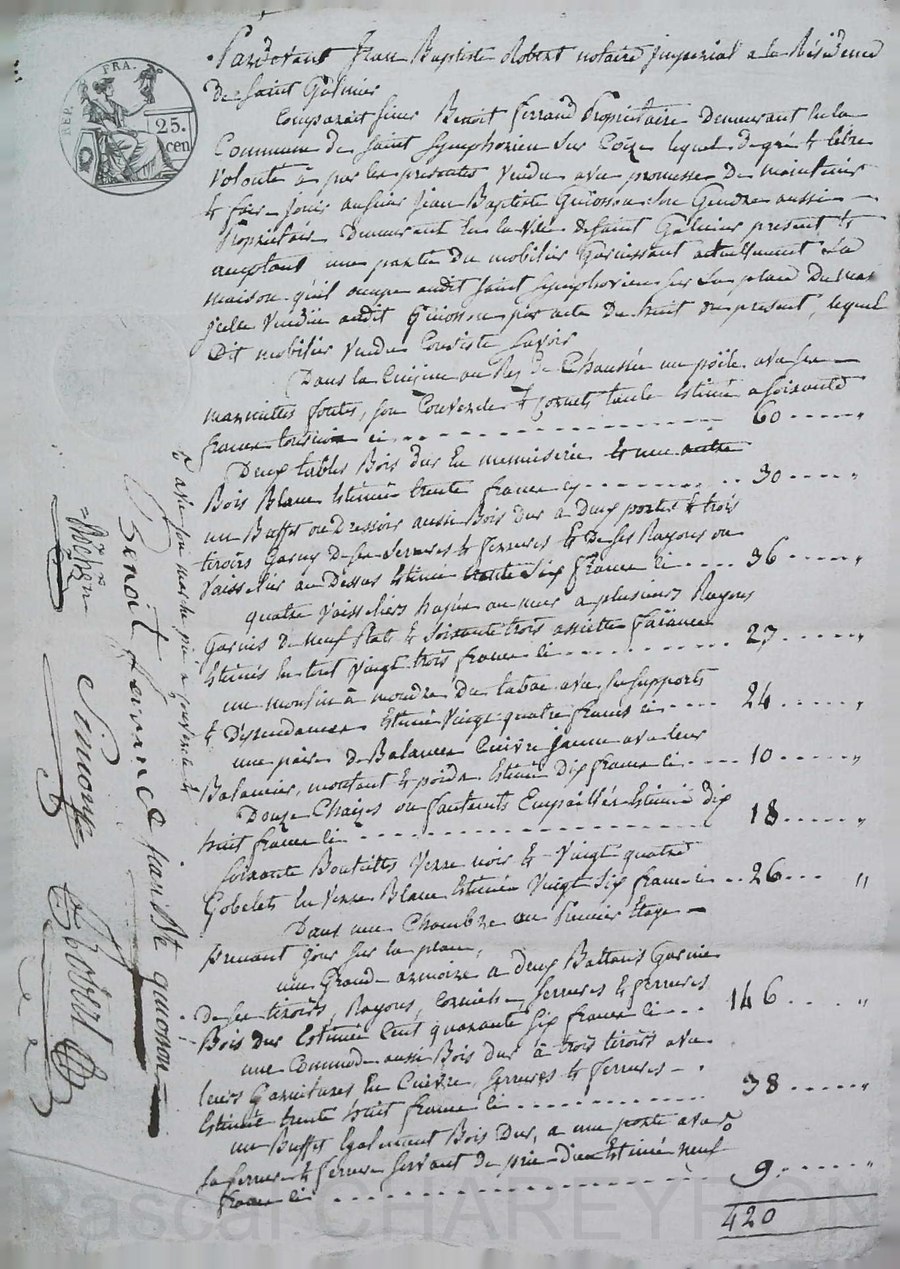 REP. FRA.
25.
cen
Pardevant Jean Baptiste Robert notaire Imperial a la Résidence
De Saint Galmier
Comparait sieur Benoit Ferrand Propriétaire Demeurant en la
Commune de Saint Symphorien sur Coize lequel de gré & libre
Volonté à par les présentes Vendu avec promesse De maintenir
& faire jouir au sieur Jean Baptiste Guiosson son Gendre aussi
Propriétaire Demeurant En la Ville de Saint Galmier present &
acceptant une partie Du mobilier Garnissant actuellement la
maison qu'il occupe audit Saint Symphorien sur la place Du
Vendüe audit Guiosson par acte Du huit du present, lequel
Dit mobilier Vendu Consiste Savoir
Dans la Cuisine au Rez de Chaussée un poële avec ses
marmittes fontes, son Couvercle & Cornets taule Estimé a soixante
francs ci 60
Deux tables Bois dur En menuiserie & une autre
Bois Blanc Estimée trente francs cy 30
un Buffet ou Dressoir aussi Bois dur à Deux portes & trois
tiroirs Garny de ses Serrures & ferrures & De ses Rayons ou
Vaisselier au Dessus Estimé trente six francs ci 36
quatre Vaisseliers au mur a plusieurs Rayons
Garnis de neuf plats & Soixante trois assiette faïance
Estimés En tout Vingt trois francs ci 23
un moulin à moudre Du tabac avec ses supports
& Dependances Estimé Vingt quatre francs ci 24
une paire De Balances Cuivre jaune avec leur
Balancier, montant & poids Estimé Dix francs ci 10
Douze Chaises ou fauteuils Empaillés Estimé dix
huit francs ci 18
Soixante Bouteilles Verre noir & Vingt quatre
Gobelets En Verre Blanc Estimée Vingt six francs ci 26
Dans une Chambre au Premier Etage
prenant jour sur la place,
une Grande armoire a deux Battans Garnie
De ses tiroirs, Rayons, Corniche, Serrures & ferrures
Bois dur Estimée Cent quarante six francs ci 146
une Commode aussi Bois Dur à trois tiroirs avec
leurs Garnitures En Cuivre, Serrures & ferrures
Estimée trente huit francs ci 38
un Buffet Egalement Bois Dur, a une porte avec
sa serrure & ferrure servant de prie-Dieu Estimé neuf
francs ci 9
420
Benoit Ferrand
jean Bte guiosson
Simond
Robert
Pascal CHAREYRON